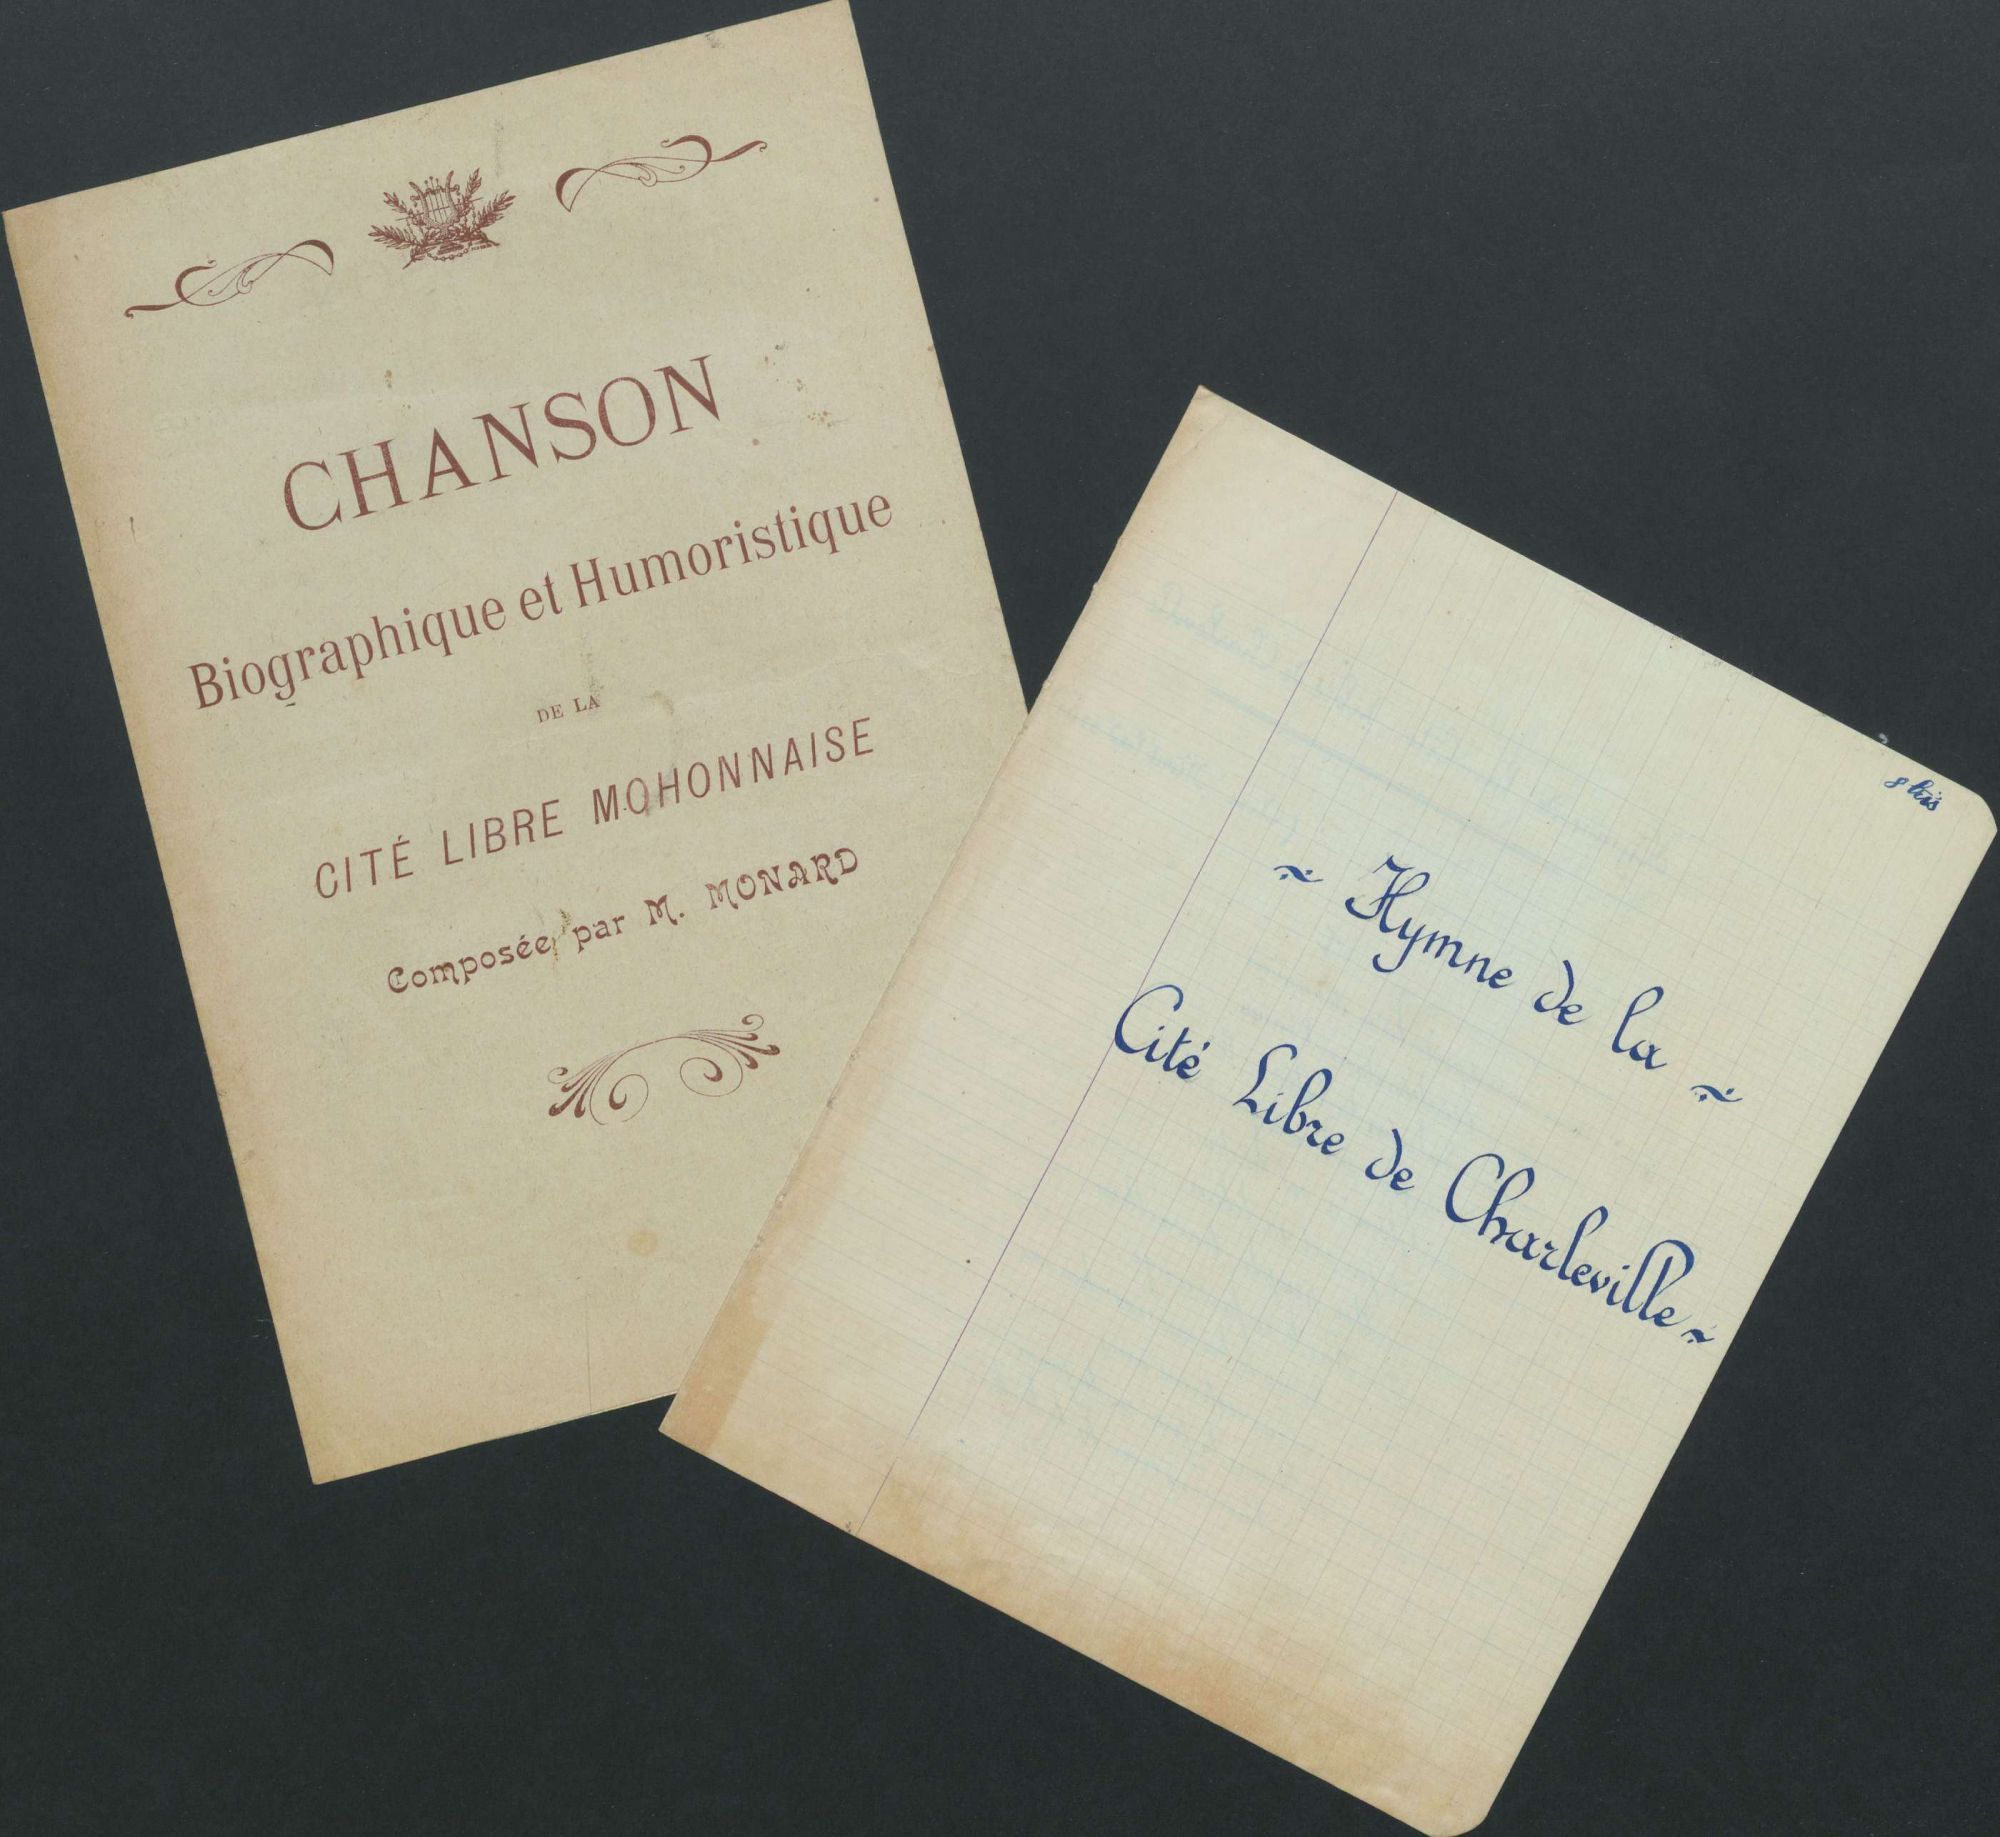 CHANSON
Biographique et Humoristique
DE LA
CITÉ LIBRE MOHONNAISE
Composée par M. MONARD
8 bis
~ Hymne de la ~
Cité Libre de Charleville ~